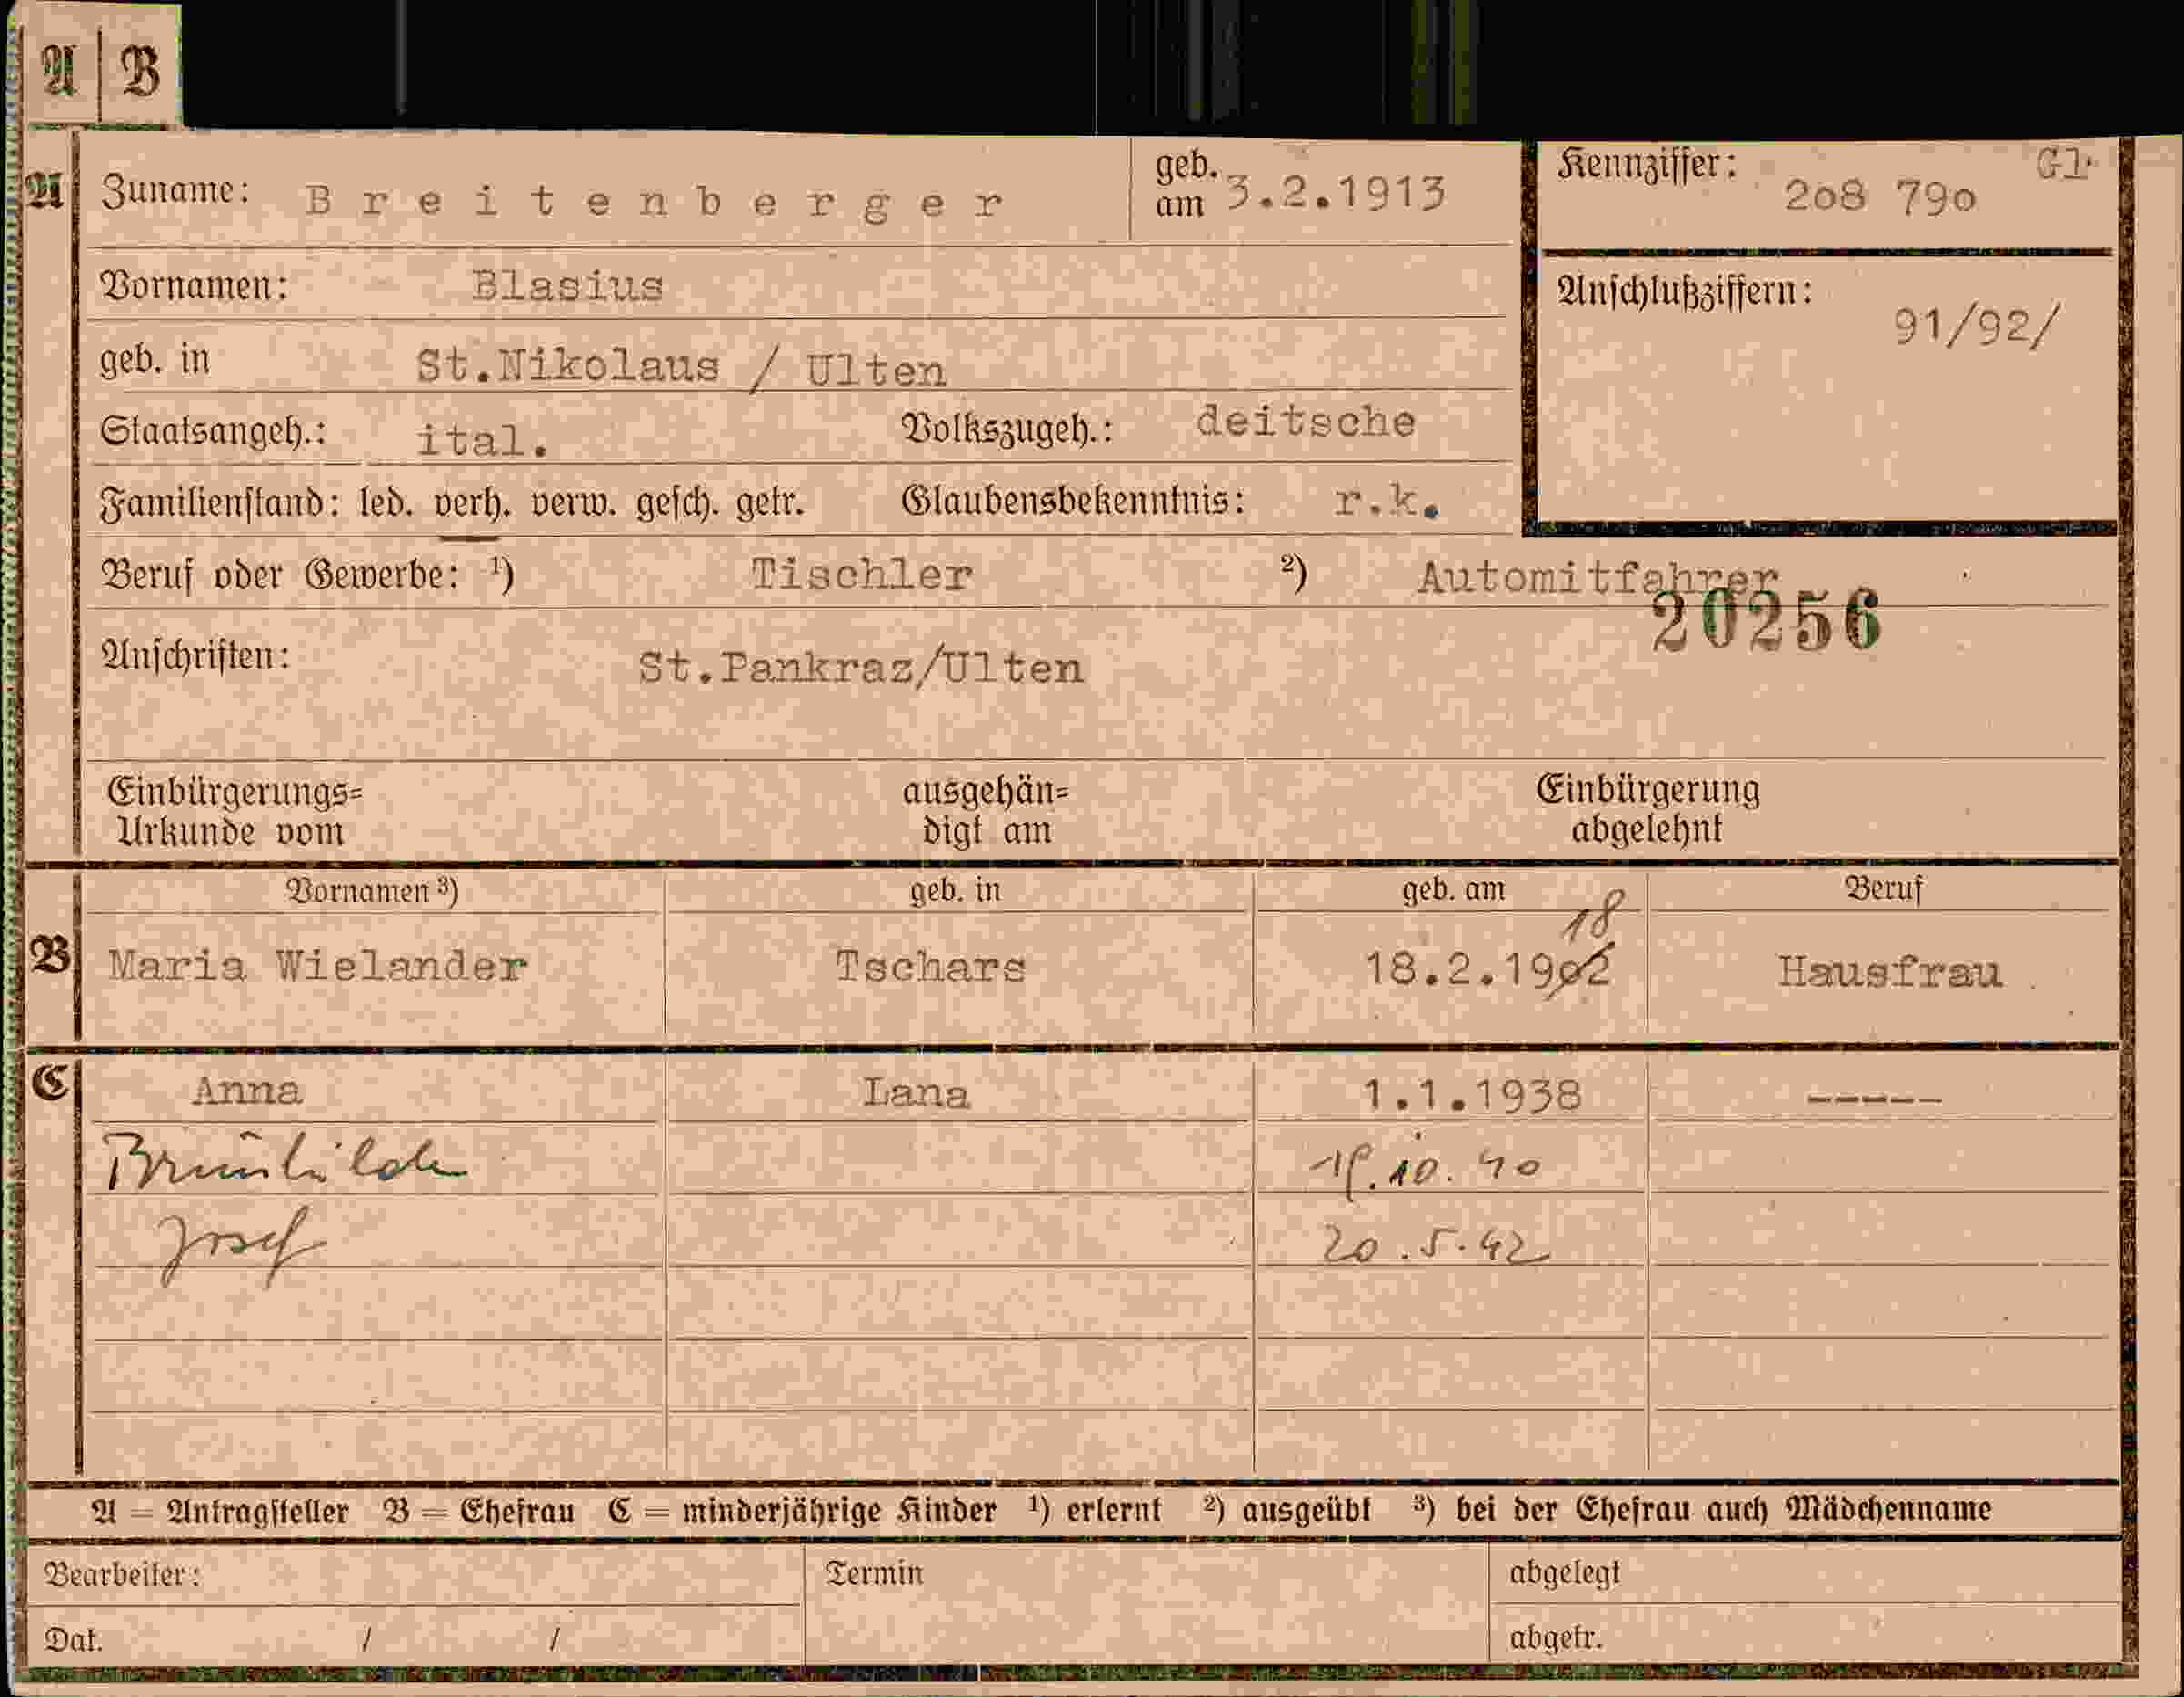 A B
A Zuname: Breitenberger geb. am 3.2.1913 Kennziffer: 208 790 Gl.
Vornamen: Blasius Anschlußziffern: 91/92/
geb. in St.Nikolaus / Ulten
Staatsangeh.: ital. Volkszugeh.: deitsche
Familienstand: led. verh. verw. gesch. getr. Glaubensbekenntnis: r.k.
Beruf oder Gewerbe: ¹) Tischler ²) Automitfahrer
20256
Anschriften: St.Pankraz/Ulten
Einbürgerungs= ausgehän= Einbürgerung
Urkunde vom digt am abgelehnt
Vornamen ³) geb. in geb. am Beruf
18
B Maria Wielander Tschars 18.2.1902 Hausfrau
C Anna Lana 1.1.1938 -----
Brunhilde 10. 40
Josef 20.5.42
A = Antragsteller B = Ehefrau C = minderjährige Kinder ¹) erlernt ²) ausgeübt ³) bei der Ehefrau auch Mädchenname
Bearbeiter: Termin abgelegt
Dat. / / abgetr.